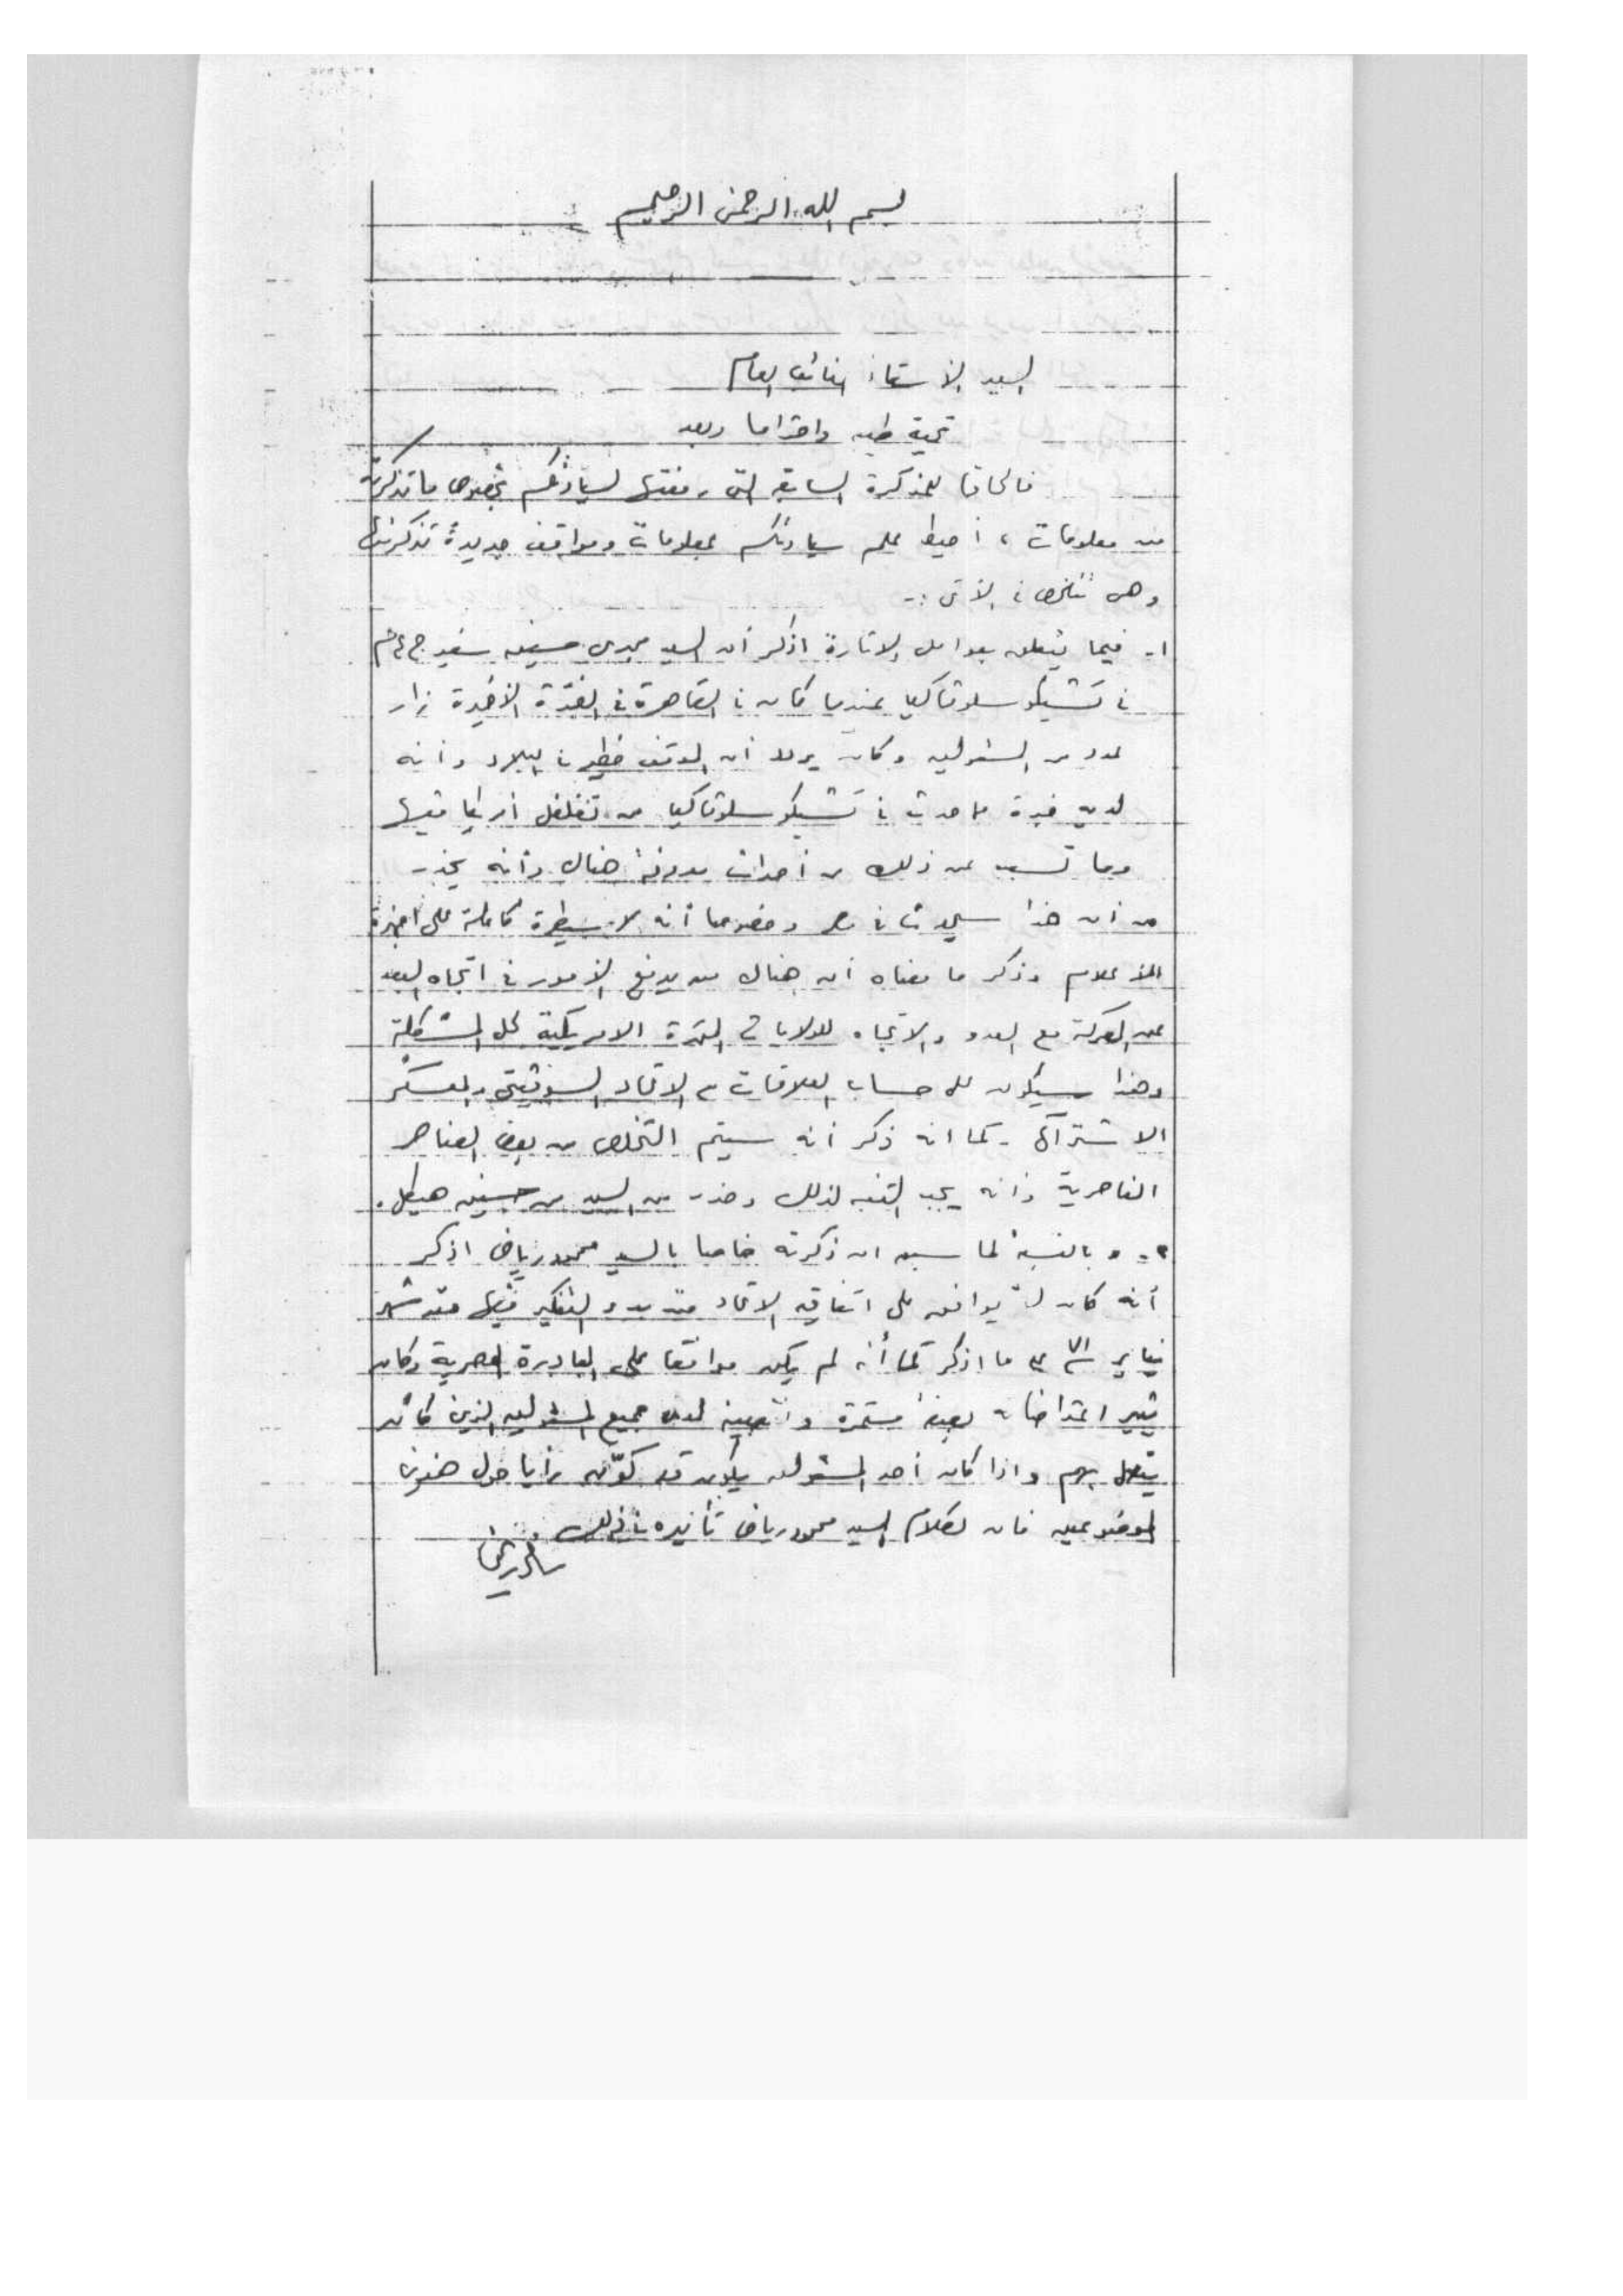 بسم الله الرحمن الرحيم
السيد الأستاذ النائب العام
تحية طيبه واحتراما وبعد
فالحاقا للمذكرة السابقه التى رفعتها لسيادتكم بخصوص ما تذكرته
من معلومات ، أحيط علم سيادتكم بمعلومات ومواقف جديدة تذكرتها
وهى تتلخص فى الآتى :-
١- فيما يتعلق بعوامل الاثارة اذكر أن السيد مجدى حسنين سفير ج ع م
فى تشيكوسلوفاكيا عندما كان فى القاهرة فى الفترة الأخيرة زار
عدد من المسئولين وكان يردد أن الموقف خطير فى البلاد وأنه
لديه خبرة مما حدث فى تشيكوسلوفاكيا من تغلغل أمريكا فيها
وما تسبب عن ذلك من أحداث معروفة هناك وأنه يحذر
من أن هذا سيحدث فى مصر وخصوصا أنه لا سيطرة كاملة على اجهزة
الاعلام وذكر ما معناه أن هناك من يدفع الأمور فى اتجاه البعد
عن المعركة مع العدو والاتجاه للولايات المتحدة الامريكية لحل المشكلة
وهذا سيكون على حساب العلاقات مع الاتحاد السوفيتى والمعسكر
الاشتراكى - كما انه ذكر أنه سيتم التخلص من بعض العناصر
الناصرية وأنه يجب التنبه لذلك وحذر من السيد محمد حسنين هيكل .
٢- وبالنسبة لما سبق ان ذكرته خاصا بالسيد محمود رياض اذكر
أنه كان لا يوافق على اتفاقيه الاتحاد منذ بدء التفكير فيها منذ شهر
يناير ٧١ على ما اذكر كما أنه لم يكن موافقا على المبادرة المصرية وكان
يثير اعتراضاته بصفة مستمرة لدى جميع المسئولين الذين كان
يتصل بهم واذا كان أحد المسئولين يكون قد كوّن رأيا حول هذين
الموضوعين فان لكلام السيد محمود رياض تأثيره فى ذلك .